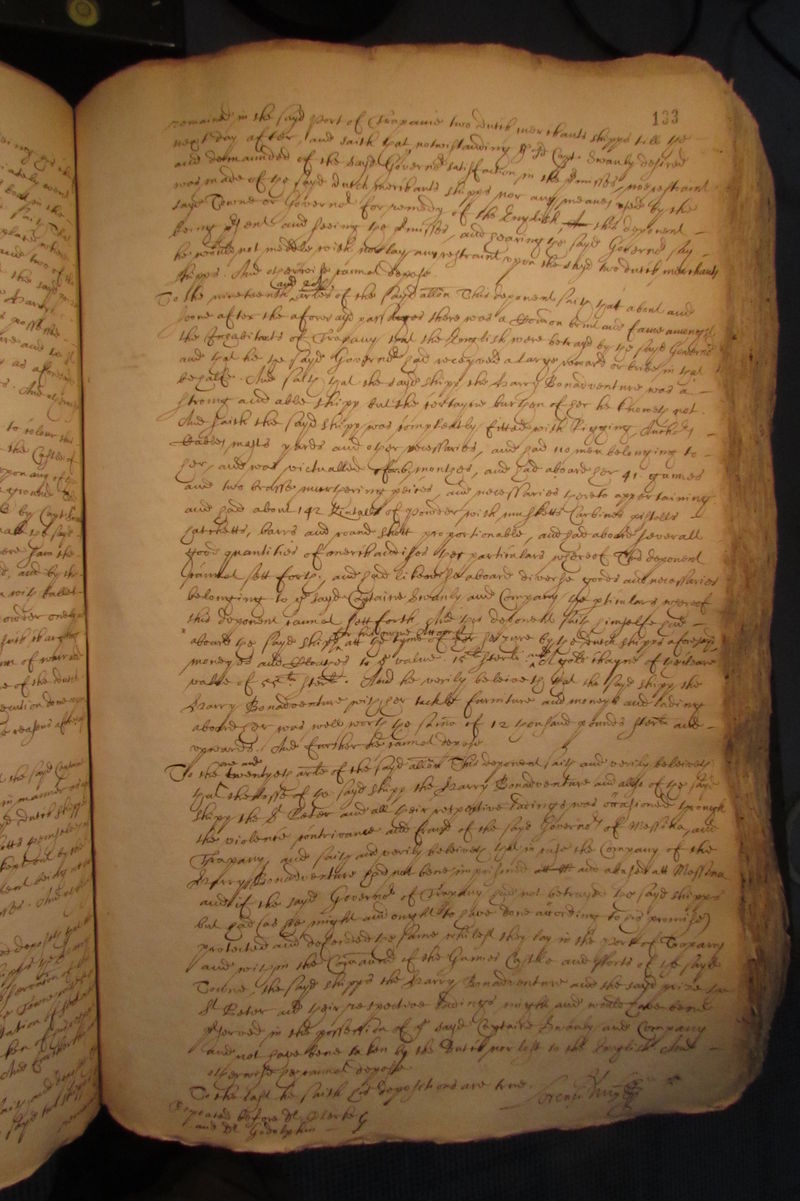 133
remained in the sayd Port of Trapanie two dutch merchants shipps till the
next day after, and saith that notwithstanding ye sd Capt. Swanly desired
and demaunded of the said Governor satisfaction in the premisses, noe restraint
was made of the sayd dutch merchants shipps nor any meanes used by the
sayd Towne or Governor for remedy of the English this deponent
being present and seeing the premisses, and hearing the sayd Governor say
he would not meddle with, nor lay any restraint upon the sayd two dutch merchants
shipps. And otherwise cannot depose.
To the nineteenth and 20th arles of the sayd allon This deponent saith that about and
soone after the aforesayd passages there was a Common brute and fame amongst
the Inhabitants of Trapany that the English were betrayd by the sayd Governor
and that he the sayd Governor had receyved a large reward or bribe in that
behalfe. And saith that the sayd shipp the Harry Bonadventure was a
strong and able shipp but the certayne burthen of her he knoweth not.
And saith the sayd shipp was compleatly fitted with Rigging Anchors
Cables masts yards and other necessaries, and had 110 men belonging to
her, and was victualled for 6 monthes, and had aboard her 41 gunnes
and two brasse murthering peices, and necessaries thereto appertaining
and had about 142 Kintalls of Powder with musketts Carbines pistolls
hatchetts, barrs and round shott proportionable, and had aboard severall
good quantities of merchandises the particulars whereof This deponent
cannot sett forth, and had likewise aboard diverse goods and necessaries
belonging to ye sayd Captaine Swanly and Company the pticulars whereof
this deponent cannot sett forth And this deponent saith himselfe had
aboard the sayd shipp for his owne att the tyme of her seizure by the dutch shipps aforesayd
moneyes and Cloathes to ye value 15li sterli and a gold chayne of the
value of 55li sterli. And he verily beleiveth that the sayd shipp the
Harry Bonadventure with her tackle furniture and moneys and lading
aboard her was well worth the summe of 12 thousand poundes sterli and
upwards. And further he cannot depose
To the one and twentyeth arle of the sayd allon This deponent saith and verily beleiveth
that the losse of the sayd shipp the Harry Bonadventure and allso of the sayd
shipp the St Peter and all their respective ladings was occasioned through
the violence contrivance and fraud of the sayd Governors of Messina, and
Trapany, and saith and verily beleiveth that in case the Company of the
Harry Bonadventure had not bene imprisoned and abused att Messina
and if the sayd Governor of Trapany had not betrayed the sayd shipps
but had (as he might and ought to have done according to his promise)
protected and defended the same whilest they lay in the Port of Trapany
and within the Command of the Gunnes Castle and fforts of the sayd
Towne, the sayd shipps the Harry Bonadventure and the sayd prize the
St Peter and their respective ladings might and would have bene
pserved in the possession of ye sayd Captaine Swanly and Company
and not have bene taken by the Dutch nor lost to the English And
otherwise he cannot depose
To the last he saith his depositions are true.
Repeated before Dr Clerke
and Dr Godolphin